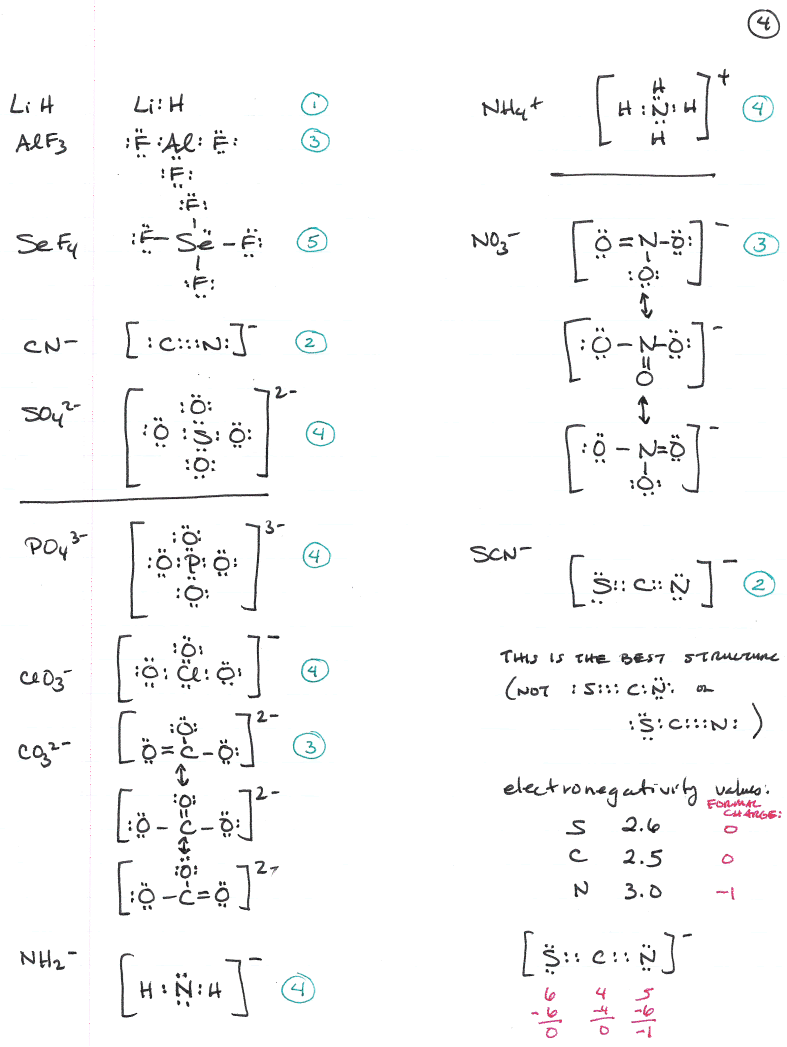 ④
LiH Li:H ①
AlF3 :F̈:Al:F̈: ③
:F̈:
:F̈:
SeF4 :F̈–Së–F̈: ⑤
:F̈:
CN⁻ [:C:::N:]⁻ ②
SO4²⁻ [:Ö:S:Ö:]²⁻ ④
:Ö:
:Ö:
PO4³⁻ [:Ö:P:Ö:]³⁻ ④
:Ö:
:Ö:
ClO3⁻ [:Ö:Cl:Ö:]⁻ ④
:Ö:
CO3²⁻ [Ö=C–Ö:]²⁻ ③
:Ö:
↕
[:Ö–C–Ö:]²⁻
:O:
↕
[:Ö–C=Ö]²⁻
:Ö:
NH2⁻ [H:N̈:H]⁻ ④
NH4⁺ [H:N:H]⁺ ④
H
H
NO3⁻ [Ö=N–Ö:]⁻ ③
:Ö:
↕
[:Ö–N–Ö:]⁻
O
↕
[:Ö–N=Ö]⁻
:Ö:
SCN⁻ [S̈::C::N̈]⁻ ②
THIS IS THE BEST STRUCTURE
(NOT :S:::C:N̈: OR
:S̈:C:::N:)
electronegativity values:
FORMAL
CHARGE:
S 2.6 0
C 2.5 0
N 3.0 -1
[S̈::C::N̈]⁻
6 4 5
-6 -4 -6
0 0 -1